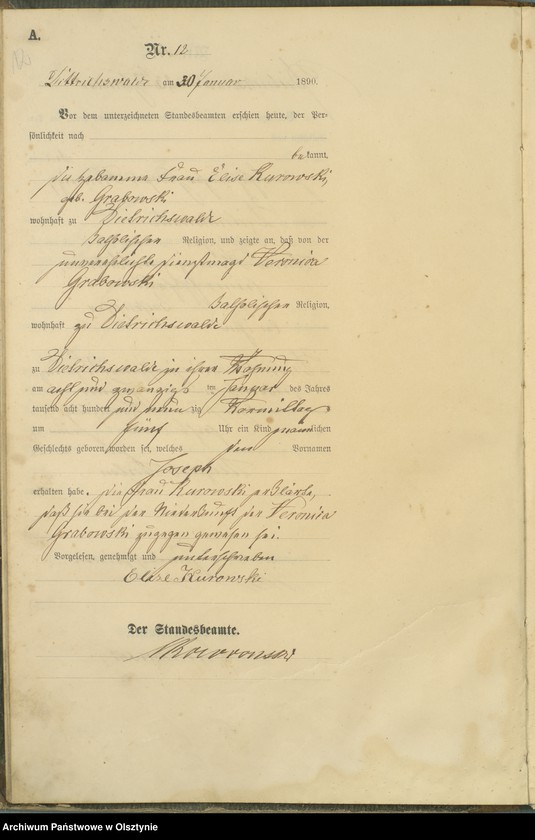 A.
Nr. 12
Dittrichswalde am 30 Januar 1890.
Vor dem unterzeichneten Standesbeamten erschien heute, der Per-
sönlichkeit nach
bekannt,
die Hebamme Frau Elise Kurowski,
geb. Grabowski
wohnhaft zu Dietrichswalde
katholischer Religion, und zeigte an, daß von der
unverehelichte Dienstmagd Veronica
Grabowski
katholischer Religion,
wohnhaft zu Dietrichswalde
zu Dietrichswalde in ihrer Wohnung
am acht und zwanzigs im Januar des Jahres
tausend acht hundert und neunzig Vormittag
um fünf Uhr ein Kind männlichen
Geschlechts geboren worden sei, welches den Vornamen
Joseph
erhalten habe. Die Frau Kurowski erklärte,
daß sie bei der Niederkunft der Veronica
Grabowski zugegen gewesen sei.
Vorgelesen, genehmigt und unterschrieben
Elise Kurowski
Der Standesbeamte.
Archiwum Państwowe w Olsztynie